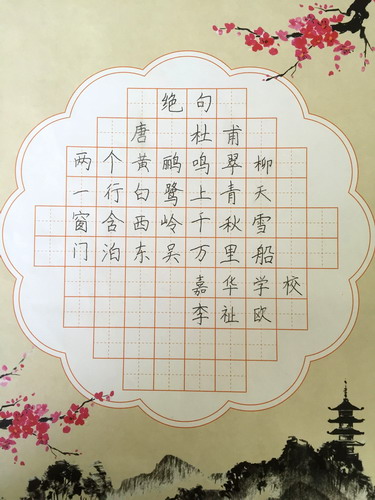 绝句
唐 杜甫
两个黄鹂鸣翠柳
一行白鹭上青天
窗含西岭千秋雪
门泊东吴万里船
嘉华学校
李祉欧